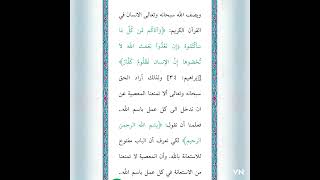 ويصف الله سبحانه وتعالى الإنسان في
القرآن الكريم: ﴿وَآتَاكُم مِّن كُلِّ مَا
سَأَلْتُمُوهُ وَإِن تَعُدُّوا نِعْمَتَ اللَّهِ لَا
تُحْصُوهَا إِنَّ الْإِنسَانَ لَظَلُومٌ كَفَّارٌ﴾
[إبراهيم: ٣٤] ولذلك أراد الحق
سبحانه وتعالى ألا تمنعنا المعصية عن
أن ندخل الى كل عمل باسم الله..
فعلمنا أن نقول: ﴿بِسْمِ اللهِ الرَّحْمَنِ
الرَّحِيمِ﴾ لكي نعرف أن الباب مفتوح
للاستعانة بالله. وأن المعصية لا تمنعنا
من الاستعانة في كل عمل باسم الله..
VN